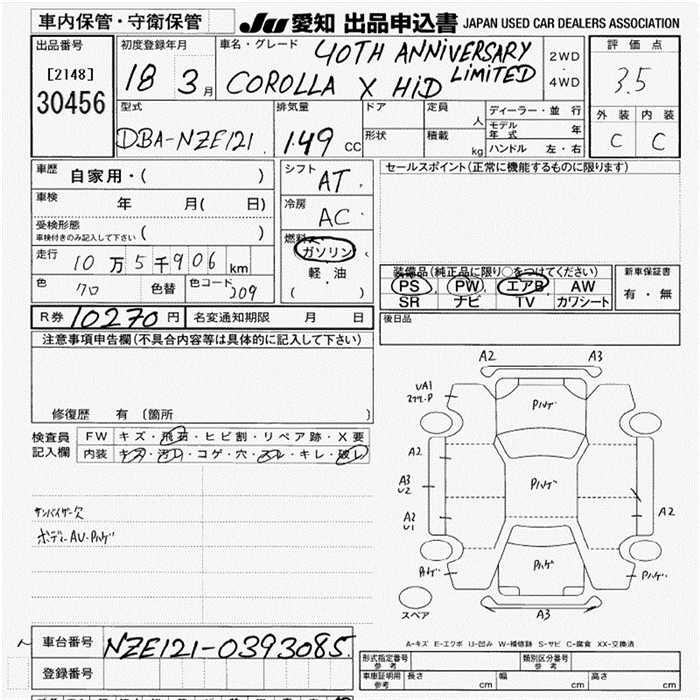 車内保管・守衛保管
JU 愛知 出品申込書 JAPAN USED CAR DEALERS ASSOCIATION
出品番号
[2148]
30456
初度登録年月
18 3月
車名・グレード
40TH ANNIVERSARY
LIMITED
COROLLA X HiD
2WD
4WD
評価点
3.5
外装 内装
C C
型式
DBA-NZE121
排気量
1.49 CC
ドア
形状
定員
人
積載
kg
ディーラー・並行
モデル年式 年
ハンドル 左・右
車歴
自家用・( )
車検
年 月( 日)
受検形態
車検付きのみ記入して下さい ( )
走行
10万5千906km
色
クロ
色替
色コード
209
シフト
AT
冷房
AC
燃料
ガソリン
軽・油
( )
セールスポイント(正常に機能するものに限ります)
装備品(純正品に限り○をつけてください)
PS PW エアB AW
SR ナビ TV カワシート
新車保証書
有・無
R券 10270円
名変通知期限 月 日
後日品
注意事項申告欄(不具合内容等は具体的に記入して下さい)
修復歴 有 (箇所 )
検査員
記入欄
FW キズ・飛石・ヒビ割・リペア跡・X要
内装 キズ・汚れ・コゲ・穴・スレ・キレ・破レ
サンバイザー欠
ボディーAU・ハゲ
A2
A3
UA1
ハゲ
A2
A3
U2
ハゲ
A2
U1
A2
ハゲ
ハゲ
ハゲ
A3
スペア
A-キズ E-エクボ U-凹み W-補修跡 S-サビ C-腐食 XX-交換済
車台番号
NZE121-0393085
登録番号
形式指定番号
参考
類別区分番号
参考
車庫証明用
参考
長さ cm
幅 cm
高さ cm